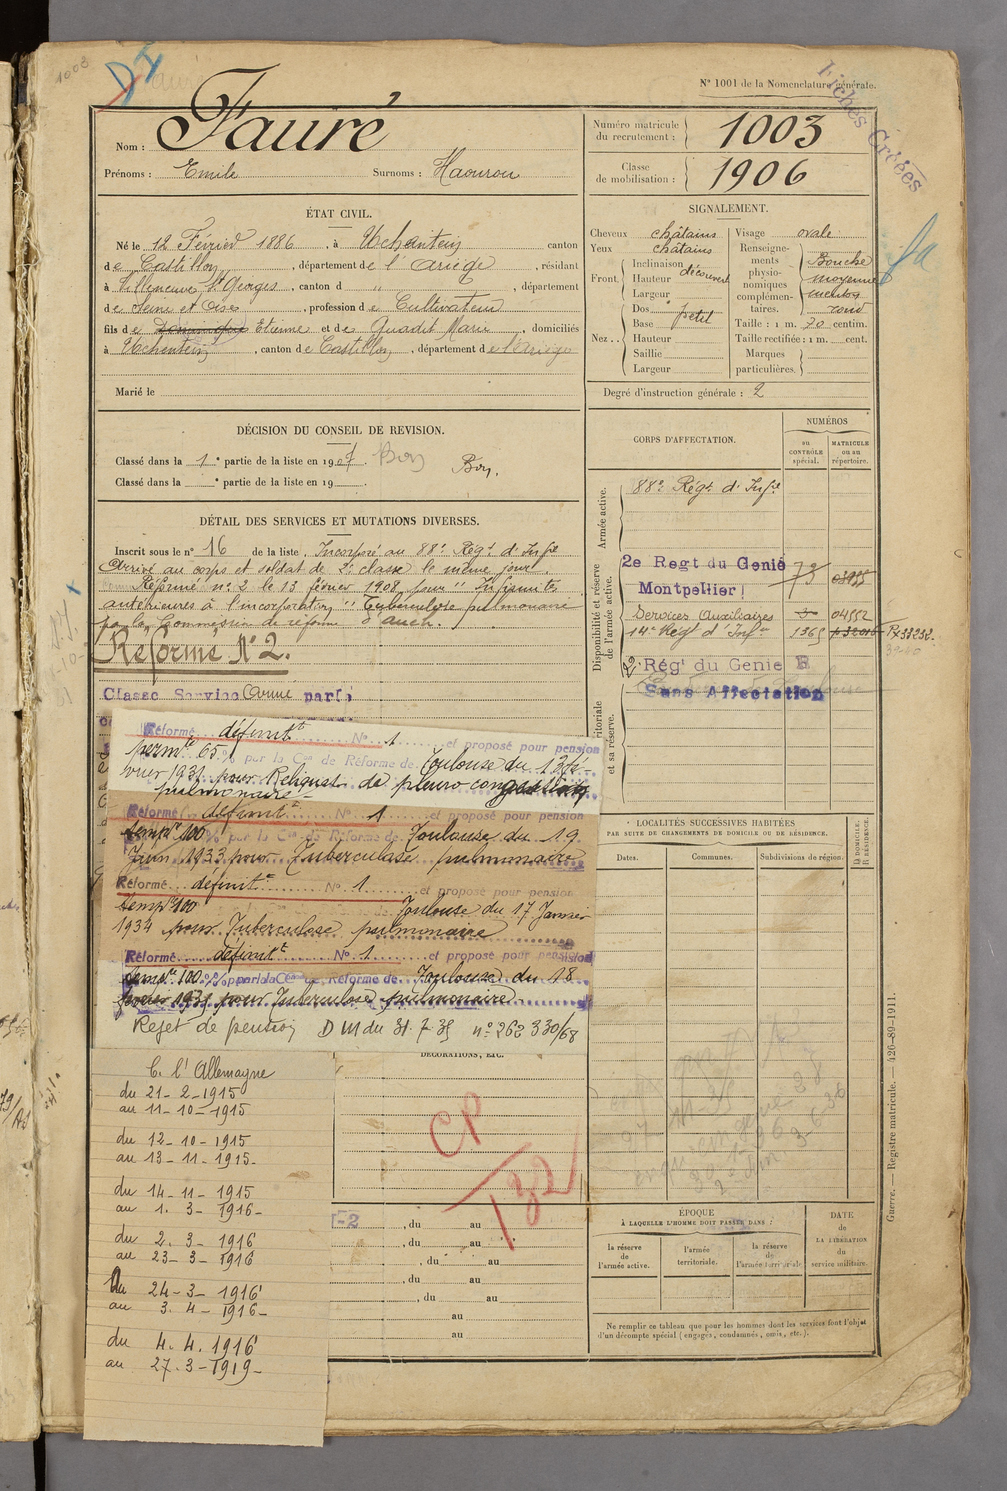 1003
N° 1001 de la Nomenclature générale.
Fiches Créées
Nom : Fauré
Prénoms : Emile Surnoms : Haourou
Numéro matricule du recrutement : 1003
Classe de mobilisation : 1906
ÉTAT CIVIL.
Né le 12 Février 1886, à Uchentein canton
de Castillon, département de l'Ariège, résidant
à Villeneuve St Georges, canton d " , département
de Seine et Oise, profession de Cultivateur
fils de Dominique Etienne et de Quadit Marie, domiciliés
à Uchentein, canton de Castillon, département de l'Ariège
Marié le
SIGNALEMENT.
Cheveux châtains
Yeux châtains
Front. Inclinaison
Hauteur découvert
Largeur
Nez.. Dos
Base petit
Hauteur
Saillie
Largeur
Visage ovale
Renseignements physionomiques complémentaires. Bouche moyenne menton rond
Taille : 1 m. 70 centim.
Taille rectifiée : 1 m. cent.
Marques particulières.
Degré d'instruction générale : 2
DÉCISION DU CONSEIL DE REVISION.
Classé dans la 1e partie de la liste en 1907. Bon Bon.
Classé dans la e partie de la liste en 19
DÉTAIL DES SERVICES ET MUTATIONS DIVERSES.
Inscrit sous le n° 16 de la liste. Incorporé au 88e Régt d'Infie
Arrivé au corps et soldat de 2e classe le même jour.
Réformé n° 2 le 13 février 1908 pour "Infirmités
antérieures à l'incorporation" "Tuberculose pulmonaire"
par la Commission de réforme d'Auch.
Réformé N° 2.
Classé Service Armé par la
Réformé définitt N° 1 et proposé pour pension
permte 65% par la Con de Réforme de Toulouse du 13 fé-
vrier 1931 pour Reliquat de pleuro congestion
pulmonaire
Réformé définitt N° 1 et proposé pour pension
tempre 100% par la Con de Réforme de Toulouse du 19
Juin 1933 pour Tuberculose pulmonaire
Réformé définitt N° 1 et proposé pour pension
tempre 100 Toulouse du 17 Janvier
1934 pour Tuberculose pulmonaire
Réformé définitt N° 1 et proposé pour pension
tempre 100% par la Con de Réforme de Toulouse du 18
février 1935 pour Tuberculose pulmonaire
Rejet de pension DM du 31.7.35 n° 262 330/68
C. l'Allemagne
du 21-2-1915
au 11-10-1915
du 12-10-1915
au 13-11-1915-
du 14-11-1915
au 1.3-1916-
du 2.3-1916
au 23-3-1916
Du 24-3-1916
au 3.4-1916-
du 4.4.1916
au 27.3-1919-
DÉCORATIONS, ETC.
CP
, du au
, du au
, du au
, du au
, du au
au
au
CORPS D'AFFECTATION.
NUMÉROS
au CONTRÔLE spécial.
MATRICULE ou au répertoire.
Armée active.
88e Régt d'Infie
Disponibilité et réserve de l'armée active.
2e Regt du Genie Montpellier 73
Services Auxiliaires 04552
14e Régt d'Infie 1365 R33232.
2e Régt du Genie R
Sans Affectation
LOCALITÉS SUCCESSIVES HABITÉES
PAR SUITE DE CHANGEMENTS DE DOMICILE OU DE RÉSIDENCE.
Dates. Communes. Subdivisions de région. D DOMICILE. R RÉSIDENCE.
ÉPOQUE
À LAQUELLE L'HOMME DOIT PASSER DANS :
la réserve de l'armée active.
l'armée territoriale.
la réserve de l'armée territoriale.
DATE de LA LIBÉRATION du service militaire.
Ne remplir ce tableau que pour les hommes dont les services font l'objet
d'un décompte spécial (engagés, condamnés, omis, etc.).
Guerre. — Registre matricule. — 426-89-1911.